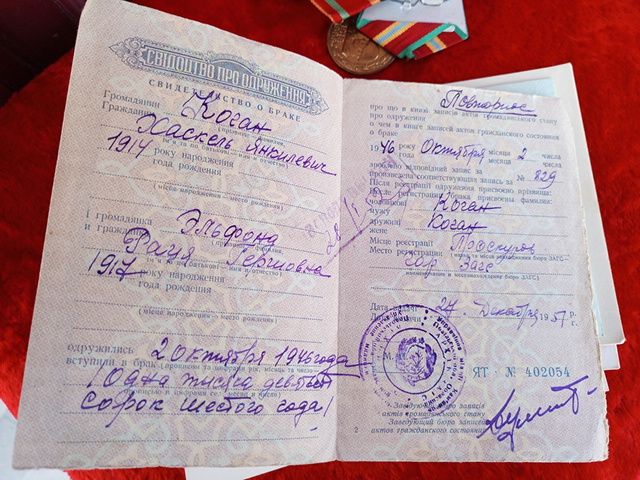 СВІДОЦТВО ПРО ОДРУЖЕННЯ
СВИДЕТЕЛЬСТВО О БРАКЕ
Громадянин Коган
Гражданин
Хаскель Янкилевич
1914 року народження
года рождения
(місце народження — место рождения)
і громадянка Эльфона
и гражданка
Рахя Гершовна
1917 року народження
года рождения
(місце народження — место рождения)
одружились 2 октября 1946 года
вступили в брак
(одна тысяча девятьсот
сорок шестого года)
2
Повторное
про що в книзі записів актів громадянського стану
про одруження
о чем в книге записей актов гражданского состояния
о браке
1946 року Октября місяця 2 числа
года месяца числа
зроблено відповідний запис за № 829
произведена соответствующая запись за
Після реєстрації одруження присвоєно прізвища:
После регистрации брака присвоены фамилии:
чоловікові Коган
мужу
дружині Коган
жене
Місце реєстрації Проскуров
Место регистрации
гор Загс
Дата видачі 27 Декабря 1951 р.
г.
М.
ЯТ № 402054
Заведуючий бюро записів
актів громадянського стану
Заведующий бюро записей
актов гражданского состояния